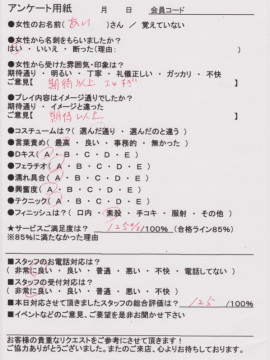 アンケート用紙　　月　　日　会員コード
●女性のお名前（あい）さん / 覚えていない
●女性から名刺をもらいましたか？
はい ・ いいえ ・ 断った(理由:　　　　)
●女性から受けた雰囲気・印象は？
期待通り ・ 明るい ・ 丁寧 ・ 礼儀正しい ・ ガッカリ ・ 不快
ご意見【 期待以上
●プレイ内容はイメージ通りでしたか？
期待通り ・ イメージと違った
ご意見【 期待以上
●コスチュームは？（ 選んだ通り ・ 選んだのと違う ）
●言葉責め（ 最高 ・ 良い ・ 事務的 ・ 無かった ）
●Dキス（ A ・ B ・ C ・ D ・ E ）
●フェラチオ（ A ・ B ・ C ・ D ・ E ）
●濡れ具合（ A ・ B ・ C ・ D ・ E ）
●興奮度（ A ・ B ・ C ・ D ・ E ）
●テクニック（ A ・ B ・ C ・ D ・ E ）
●フィニッシュは？（ 口内 ・ 素股 ・ 手コキ ・ 服射 ・ その他 ）
★サービスご満足度は？ 125%/100% （合格ライン85%）
※85%に満たなかった理由
■スタッフのお電話対応は？
（ 非常に良い ・ 良い ・ 普通 ・ 悪い ・ 不快 ・ 電話してない ）
■スタッフの受付対応は？
（ 非常に良い ・ 良い ・ 普通 ・ 悪い ・ 不快 ）
■本日対応させて頂きましたスタッフの総合評価は？ 125 /100%
■イベントなどのご意見、ご要望を是非お聞かせ下さい
お客様の貴重なリクエストをご参考にさせて頂きます！
ご協力ありがとうございました。またのご来店、心よりお待ちしております。